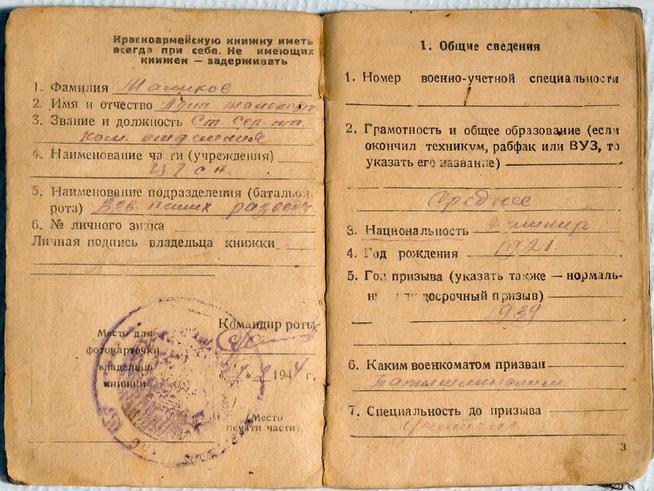 Красноармейскую книжку иметь
всегда при себе. Не имеющих
книжек — задерживать
1. Фамилия Маликов
2. Имя и отчество
3. Звание и должность Ст. сер-нт
ком. отделения
4. Наименование части (учреждения)
5. Наименование подразделения (батальон,
рота) взв. пеших разведч
6. № личного знака
Личная подпись владельца книжки
Командир роты
Место для
фотокарточки
владельца
книжки
194 г.
(Место
печати части)
1. Общие сведения
1. Номер военно-учетной специальности
2. Грамотность и общее образование (если
окончил техникум, рабфак или ВУЗ, то
указать его название)
среднее
3. Национальность
4. Год рождения 1921
5. Год призыва (указать также — нормаль-
досрочный призыв)
939
6. Каким военкоматом призван
7. Специальность до призыва
учитель
3